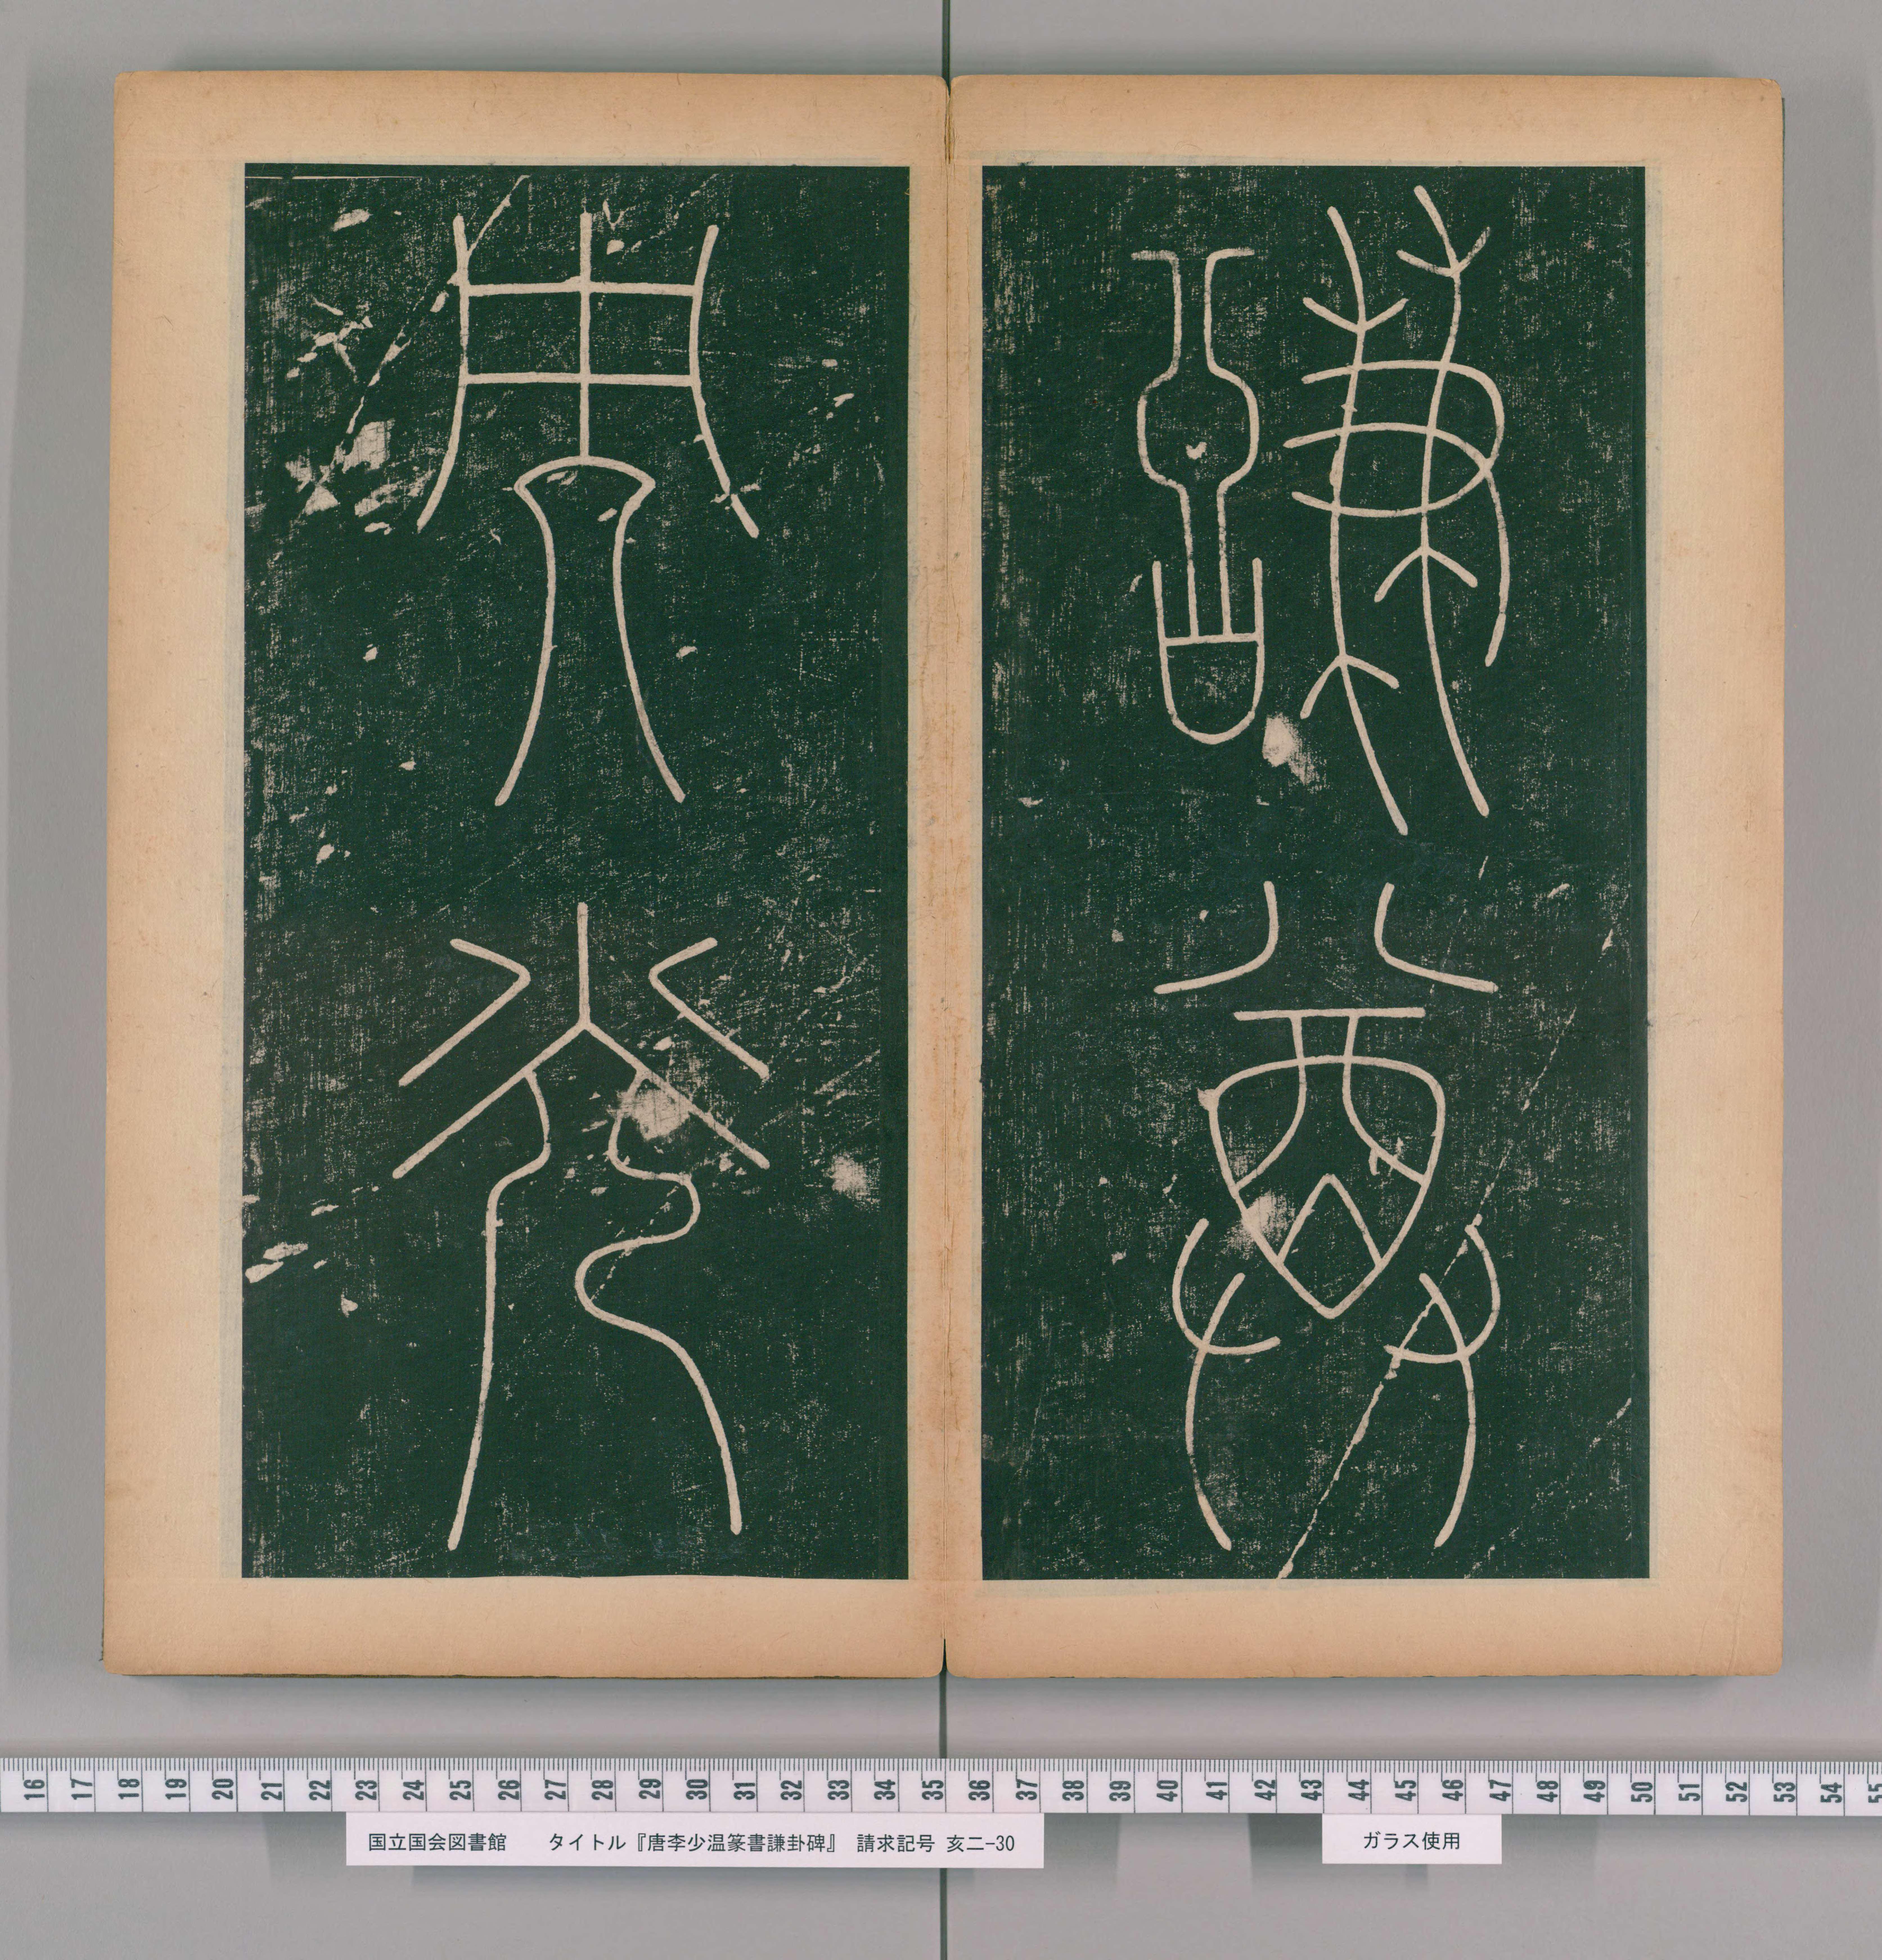 謙尊
而光
16 17 18 19 20 21 22 23 24 25 26 27 28 29 30 31 32 33 34 35 36 37 38 39 40 41 42 43 44 45 46 47 48 49 50 51 52 53 54
国立国会図書館 タイトル『唐李少温篆書謙卦碑』 請求記号 亥二-30
ガラス使用